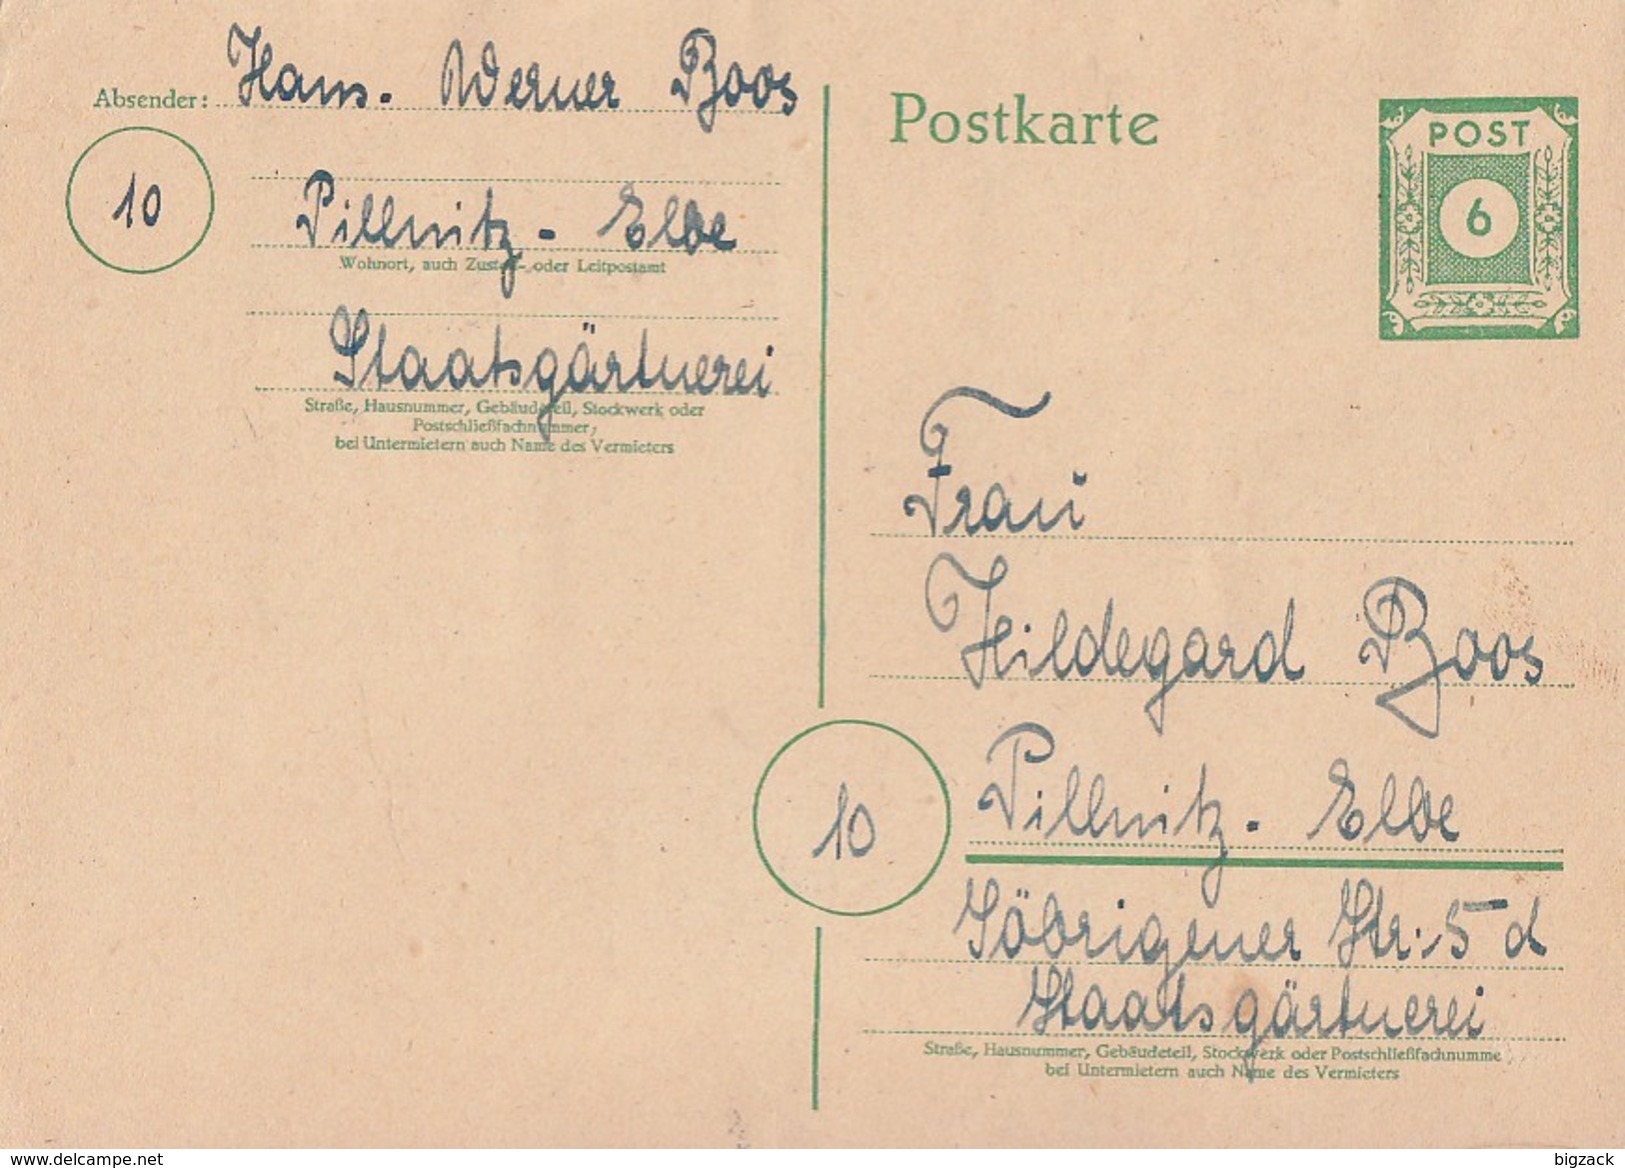 Absender: Hans-Werner Boos
10
Pillnitz-Elbe
Wohnort, auch Zustell- oder Leitpostamt
Staatsgärtnerei
Straße, Hausnummer, Gebäudeteil, Stockwerk oder
Postschließfachnummer,
bei Untermietern auch Name des Vermieters
Postkarte
POST
6
Frau
Hildegard Boos
10
Pillnitz-Elbe
Söbrigener Str. 5 d
Staatsgärtnerei
Straße, Hausnummer, Gebäudeteil, Stockwerk oder Postschließfachnumme
bei Untermietern auch Name des Vermieters
www.delcampe.net
bigzack